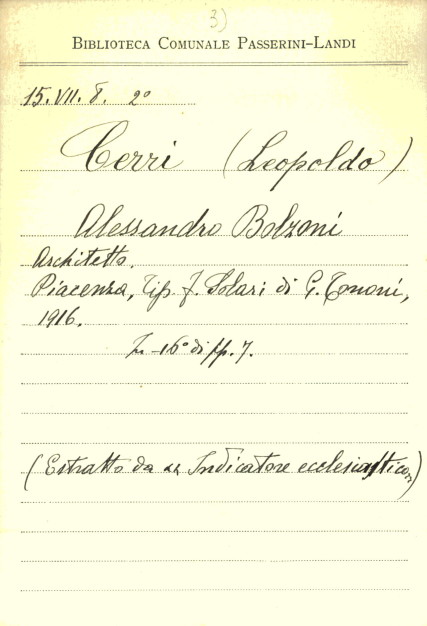 3)
BIBLIOTECA COMUNALE PASSERINI-LANDI
15. VII. 8. 2º
Cerri (Leopoldo)
Alessandro Bolzoni
Architetto.
Piacenza, Tip. F. Solari di G. Tononi,
1916.
In-16º di pp. 7.
(Estratto da "Indicatore ecclesiastico")